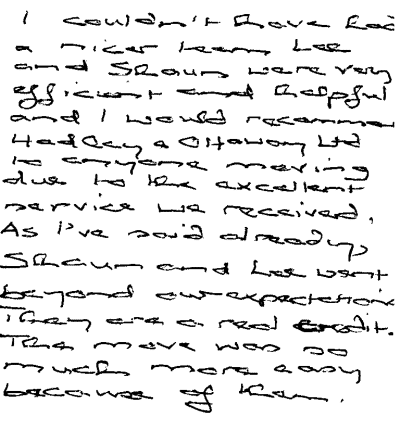 I couldn't have had
a nicer team Lee
and Shaun were very
efficient and helpful
and I would recommen
Hadley & Ottaway Ltd
to anyone moving
due to the excellent
service we received.
As I've said already,
Shaun and Lee went
beyond our expectation
They are a real credit.
The move was so
much more easy
because of them.